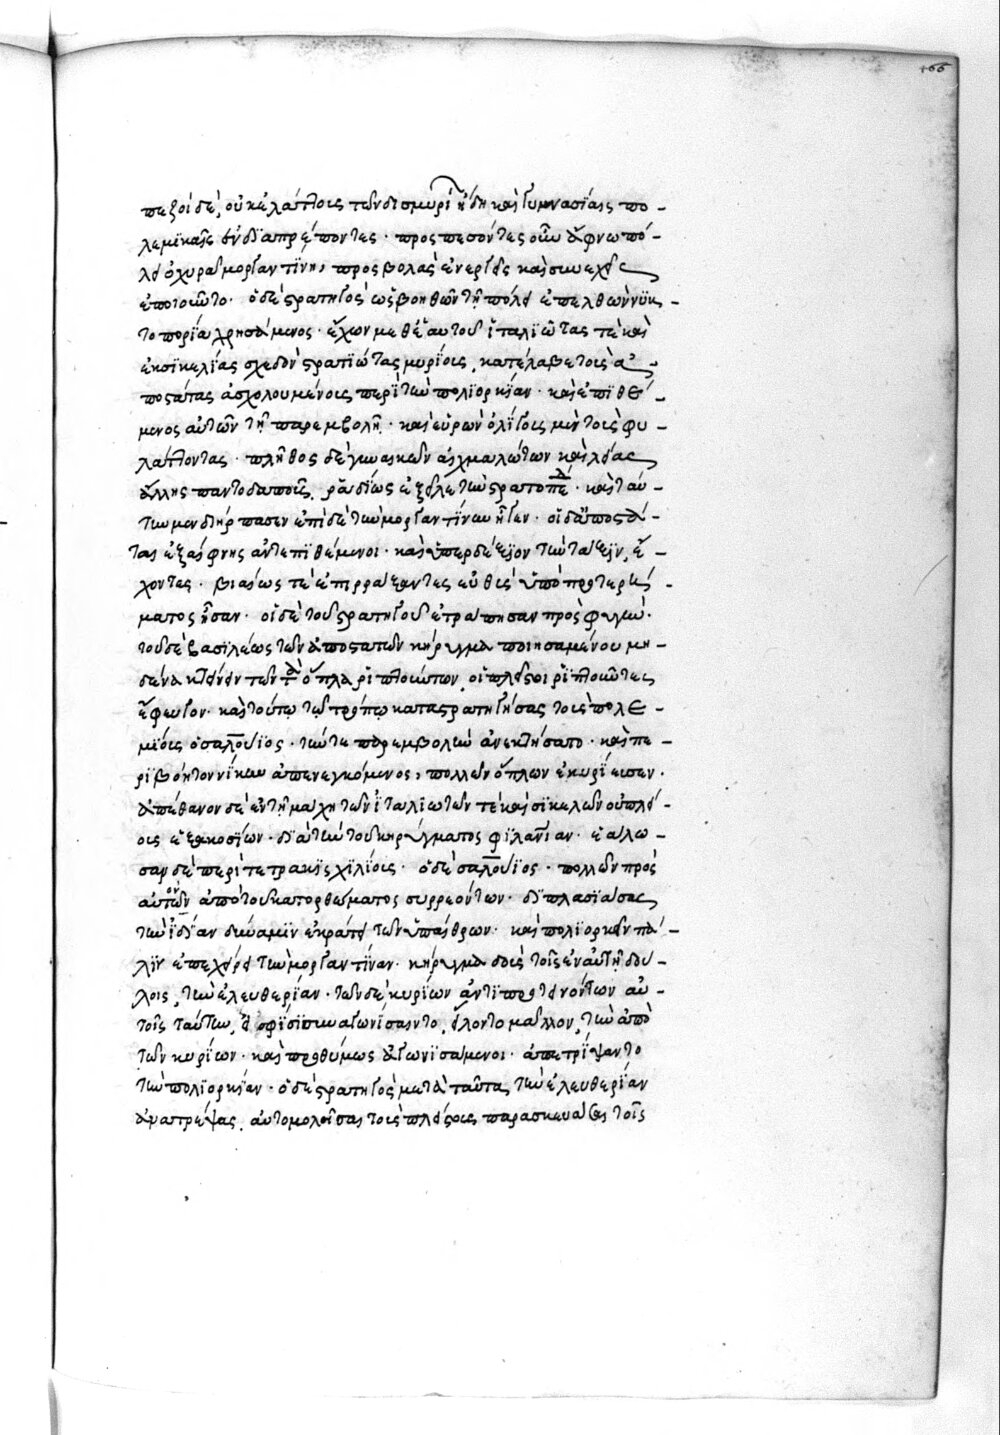 166
πεζοὶ δὲ, οὐκ ἐλάττοις τῶν δισμυρί ἤδη καὶ γυμνασίαις πο-
λεμϊκαῖς ἐνδϊαπρέποντες· προσπεσόντες οὖν ἄφνω πό-
λει ὀχυρᾶ μοργαντίνη, προσβολὰς ἐνεργεῖς καὶ συνεχεῖς
ἐποιοῦντο· ὁ δὲ στρατηγὸς ὡς βοηθῶν τῆ πόλει ἐπελθὼν νϋκ-
τοπορία χρησάμενος· ἔχων μεθ' ἑαυτοῦ ἰταλϊώτας τὲ καὶ
ἐκ σϊκελίας σχεδὸν στρατϊώτας μυρΐοις, κατέλαβε τοὺς ἀ-
ποστάτας ἀσχολουμένοις περὶ τὴν πολϊορκίαν· καὶ ἐπϊθέ-
μενος αὐτῶν τῆ παρεμβολῆ· καὶ εὑρὼν ὀλίγοις μὲν τοὺς φυ-
λάττοντας· πλῆθος δὲ γυναικῶν αἰχμαλώτων καὶ λείας
ἄλλης παντοδαποῖς, ῥαδίως ἐξεῖλε τὴν στρατοπε δ· καὶ ταύ-
την μὲν διήρπασεν ἐπὶ δὲ τὴν μοργαντίναν ἧγεν· οἱ δ' ἀποστά-
ται ἐξαίφνης ἀντεπϊθέμενοι· καὶ ὑπερδέξϊον τὴν τάξϊν, ἔ-
χοντες· βιαίως τὲ ἐπιρράξαντες εὐθὺς ὑπὸ προτερή-
ματος ἦσαν· οἱ δὲ τοῦ στρατηγοῦ ἐτράπησαν πρὸς φυγήν·
τοῦ δὲ βασϊλέως τῶν ἀποστατῶν κήρυγμα ποιησαμένου μη-
δένα κτείνειν τῶν τὰ ὅπλα ῥιπτούντων, οἱ πλεῖστοι ῥίπτοῦντες
ἔφευγον· καὶ τούτω τῶ τρόπω καταστρατηγήσας τοὺς πολε-
μΐοις ὁ σαλούϊος· τήν τε παρεμβολὴν ἀνεκτήσατο· καὶ πε-
ριβόητον νίκην ἀπενεγκόμενος, πολλῶν ὅπλων ἐκυρίευσεν·
ἀπέθανον δὲ ἐν τῆ μάχη τῶν ἰταλϊωτῶν τὲ καὶ σϊκελῶν οὐ πλεί-
οις ἑξακοσΐων· δϊὰ τὴν τοῦ κηρύγματος φϊλανΐαν· ἑάλω-
σαν δὲ περὶ τετρακϊς χιλίοις· ὁ δὲ σαλούϊος· πολλῶν πρὸς
αὐτὸν ἀπὸ τοῦ κατορθώματος συρρεόντων· δϊπλασϊάσας
τὴν ἰδΐαν δύναμϊν ἐκράτει τῶν ὑπαίθρων· καὶ πολϊορκεῖν πά-
λϊν ἐπεχείρει τὴν μοργαντΐναν· κήρυγμα δοὺς τοῖς ἐν αὐτῆ δού-
λοις, τὴν ἐλευθερΐαν· τῶν δὲ κυρίων ἀντϊπροτεινόντων αὐ-
τοῖς ταύτην, ἐὰν σφϊσϊ συναγωνίσαιντο, εἵλοντο μᾶλλον, τὴν ἀπὸ
τῶν κυρίων· καὶ προθύμως ἀγωνϊσάμενοι· ἀπετρίψαντο
τὴν πολϊορκίαν· ὁ δὲ στρατηγὸς μετὰ ταῦτα, τὴν ἐλευθερΐαν
ἀνατρέψας, αὐτομολῆσαι τοὺς πλείστους παρασκευάσει τοῖς